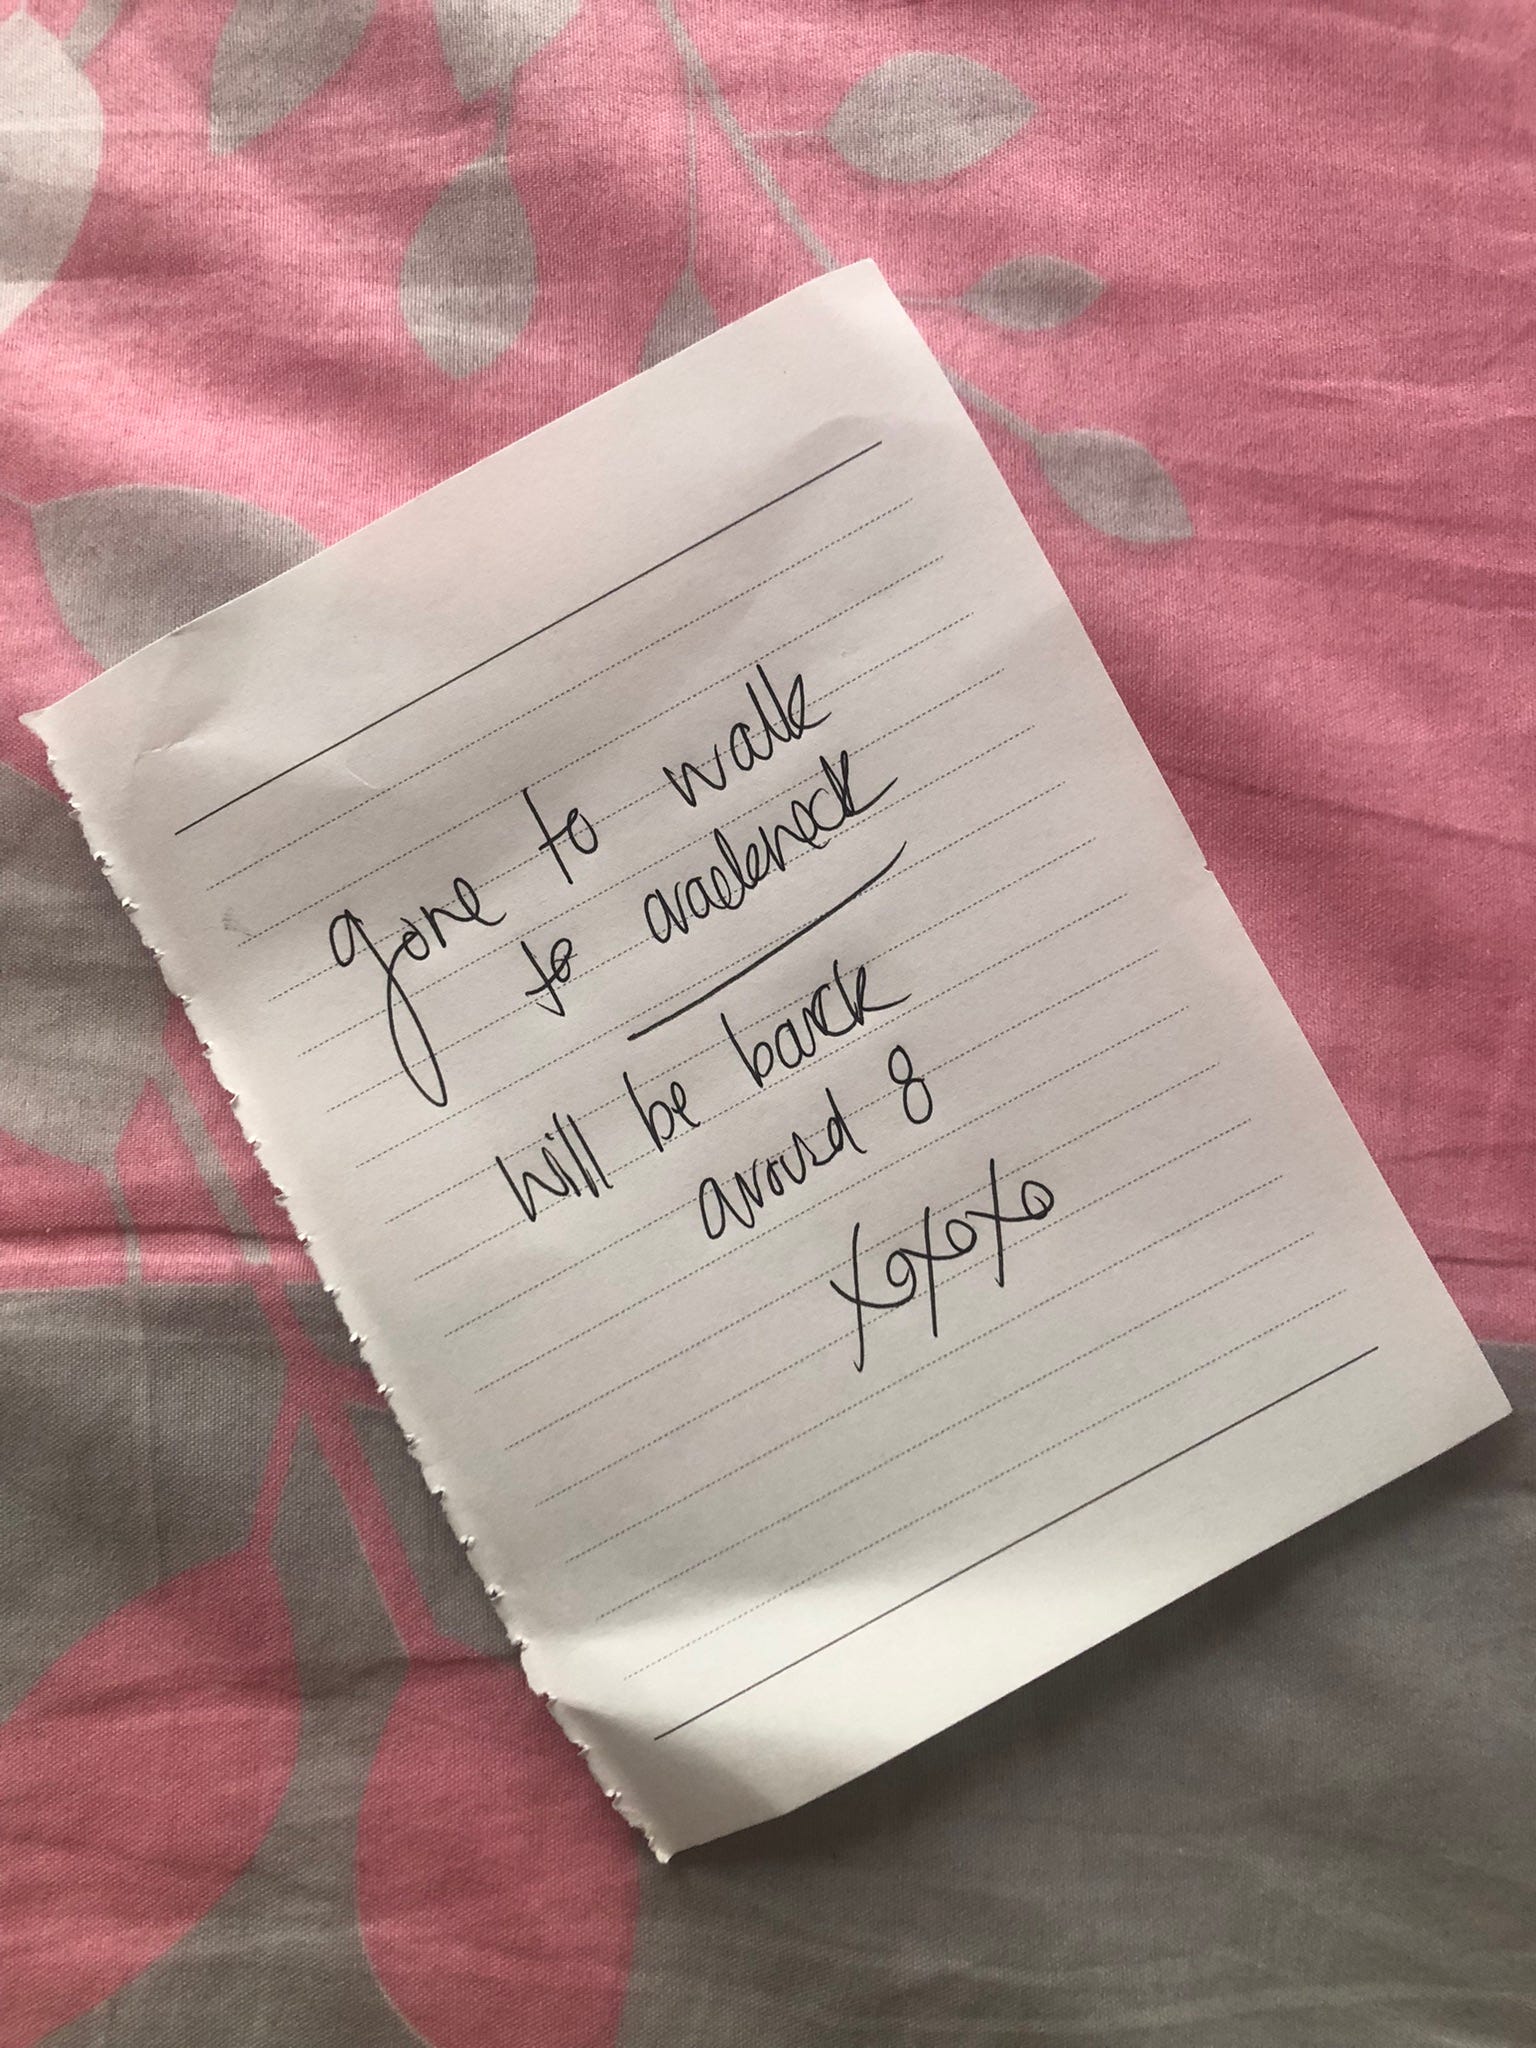 gone to walk
to
will be back
around 8
xoxoxo